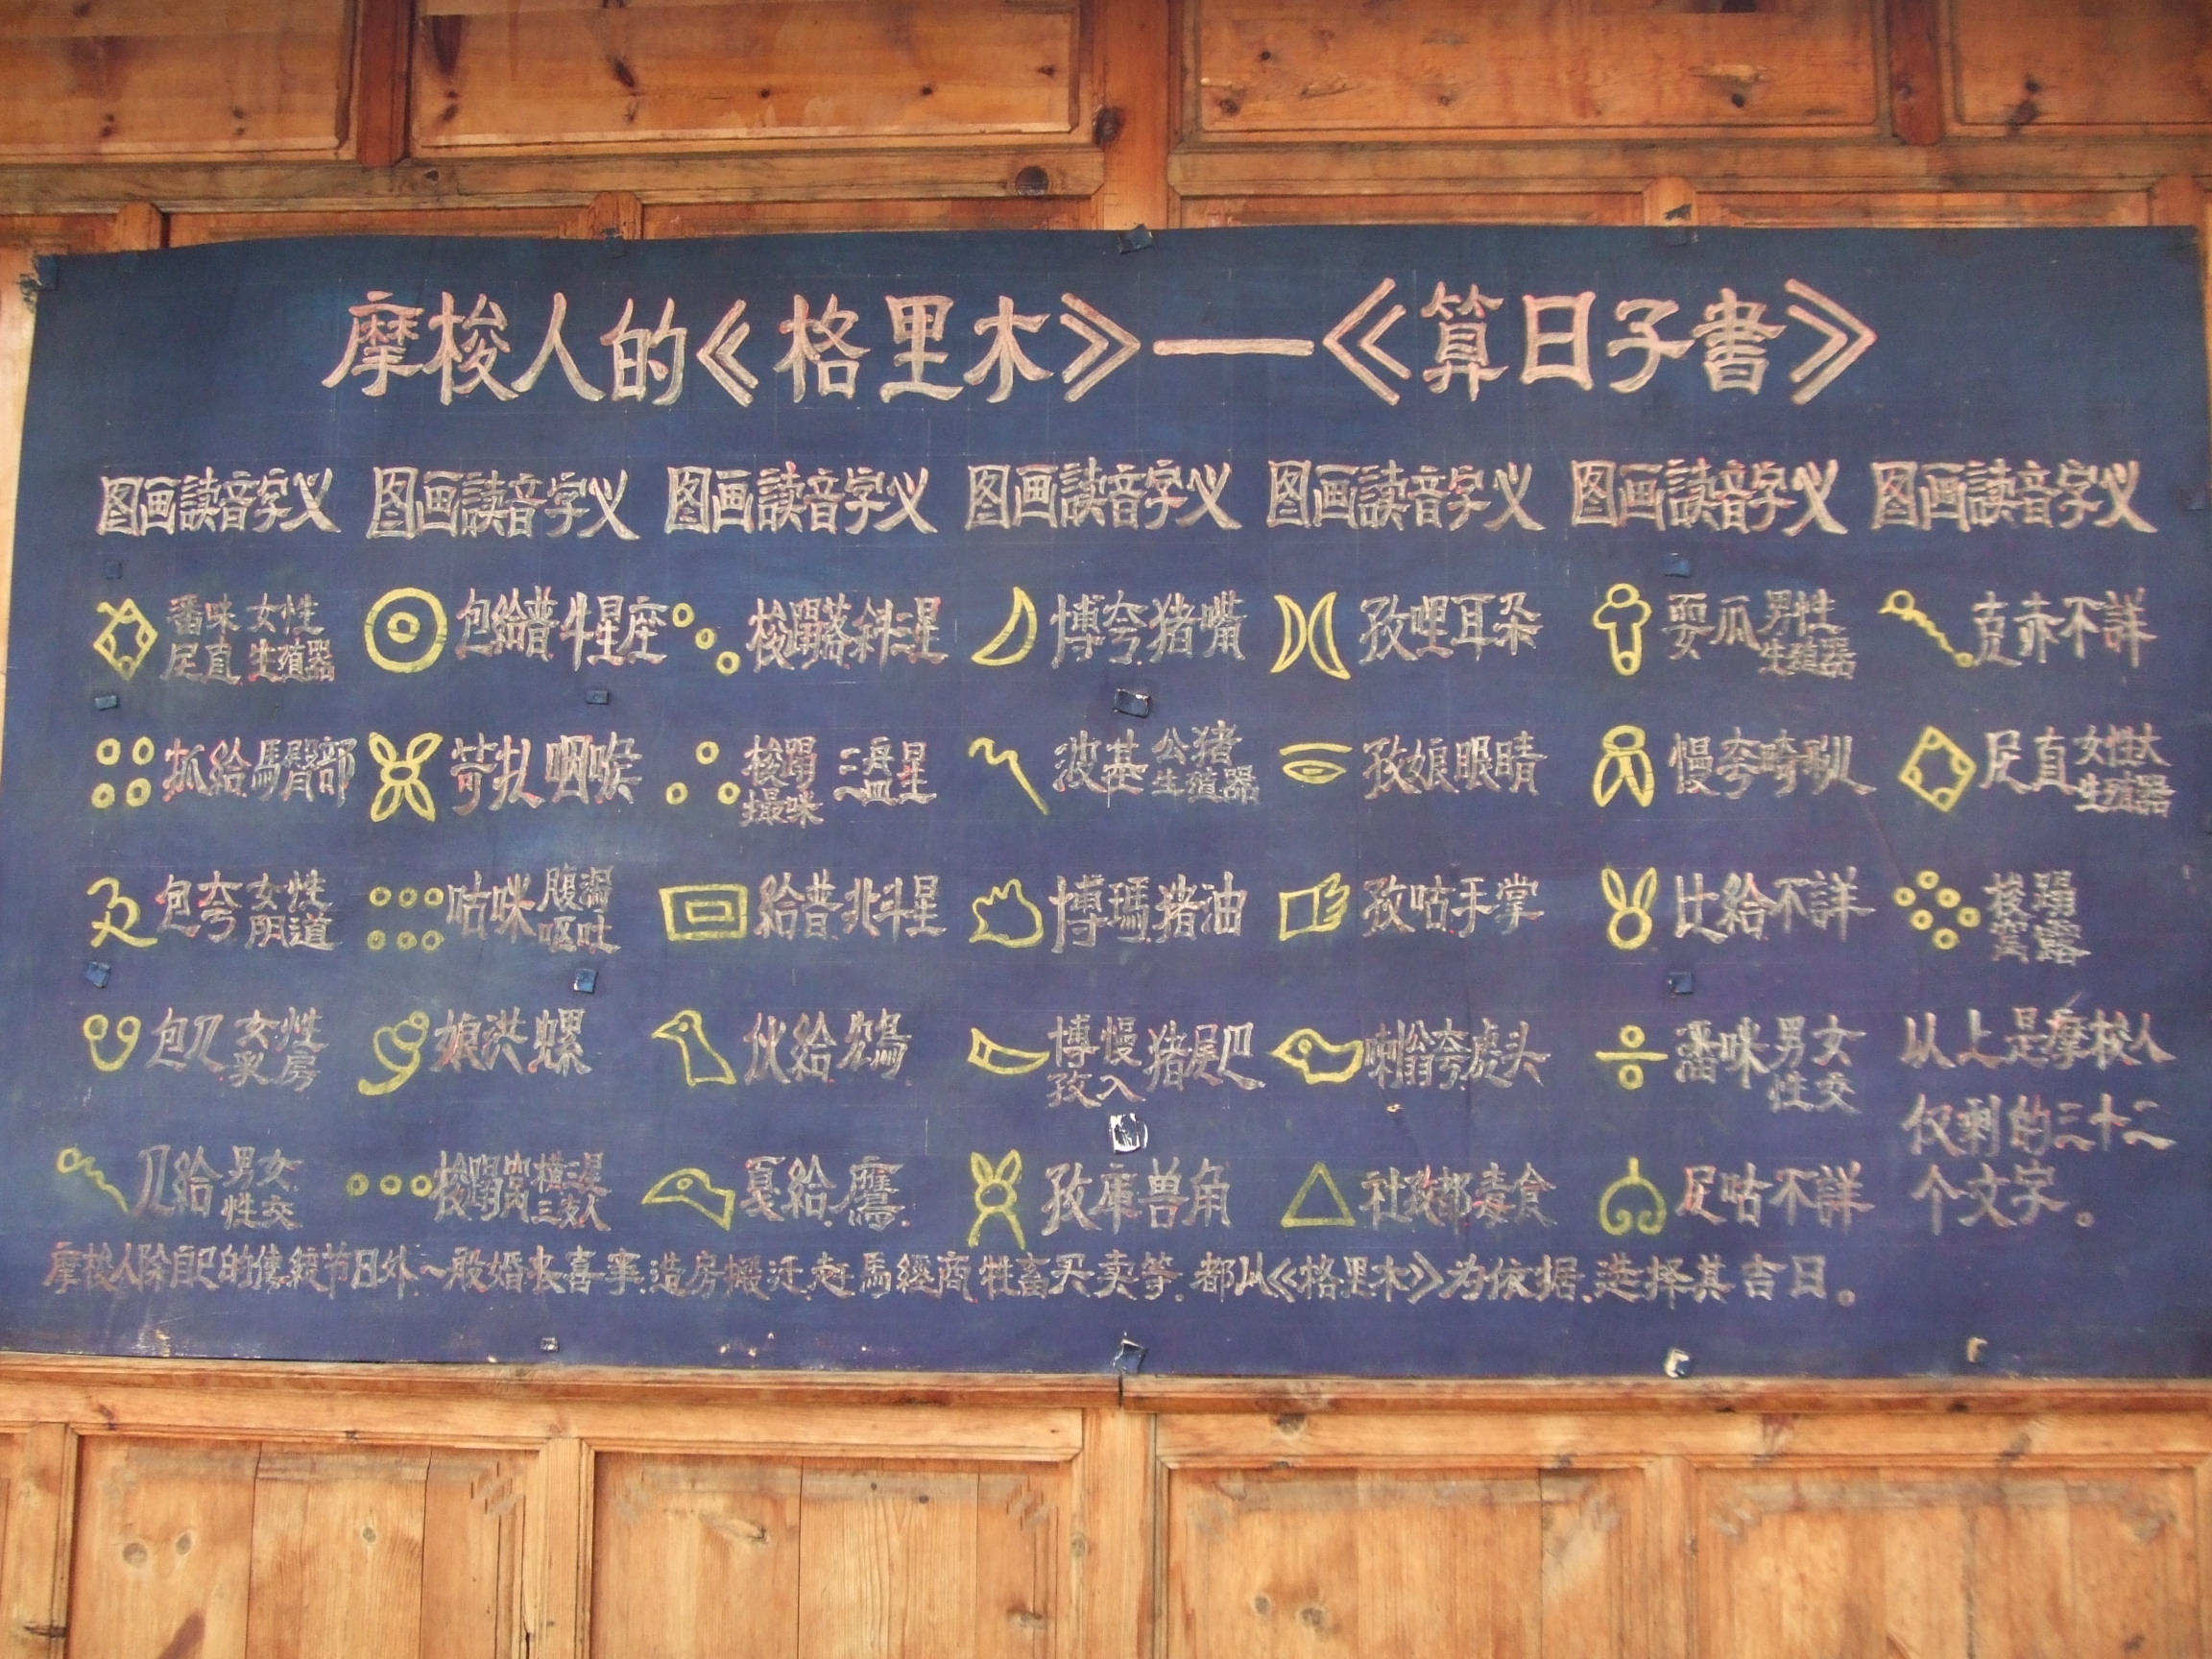 摩梭人的《格里木》—《算日子書》
图画读音字义 图画读音字义 图画读音字义 图画读音字义 图画读音字义 图画读音字义 图画读音字义
番咪 女性 包給普 牛星座 梭蹋落 斜三星 博夸 猪嘴 孜哩 耳朵 耍瓜 男性 克赤 不詳
尼直 生殖器 生殖器
抓給 馬臀部 苛扎 咽喉 梭蹋 三角星 波基 公猪 孜娘 眼睛 慢夸 畸形 尼直 女性大
撮咪 生殖器 生殖器
包夸 女性 咕咪 腹瀉 給昔 北斗星 博瑪 猪油 孜咕 手掌 比給 不詳 梭蹋
阴道 呕吐 露
包 女性 娘洪 螺 伙給 博慢 猪尾巴 喇翁夸 虎头 潘咪 男女 以上是摩梭人
乳房 孜入 性交 仅剩的三十二
給 男女 梭蹋 横三星 戛給 鹰 孜庫 兽角 社孜都 毒食 尼咕 不詳 个文字。
性交 三支人
摩梭人除自己的傳統节日外一般婚丧喜事.造房搬迁.赶馬經商牲畜买卖等.都从《格里木》为依据.选择其吉日。